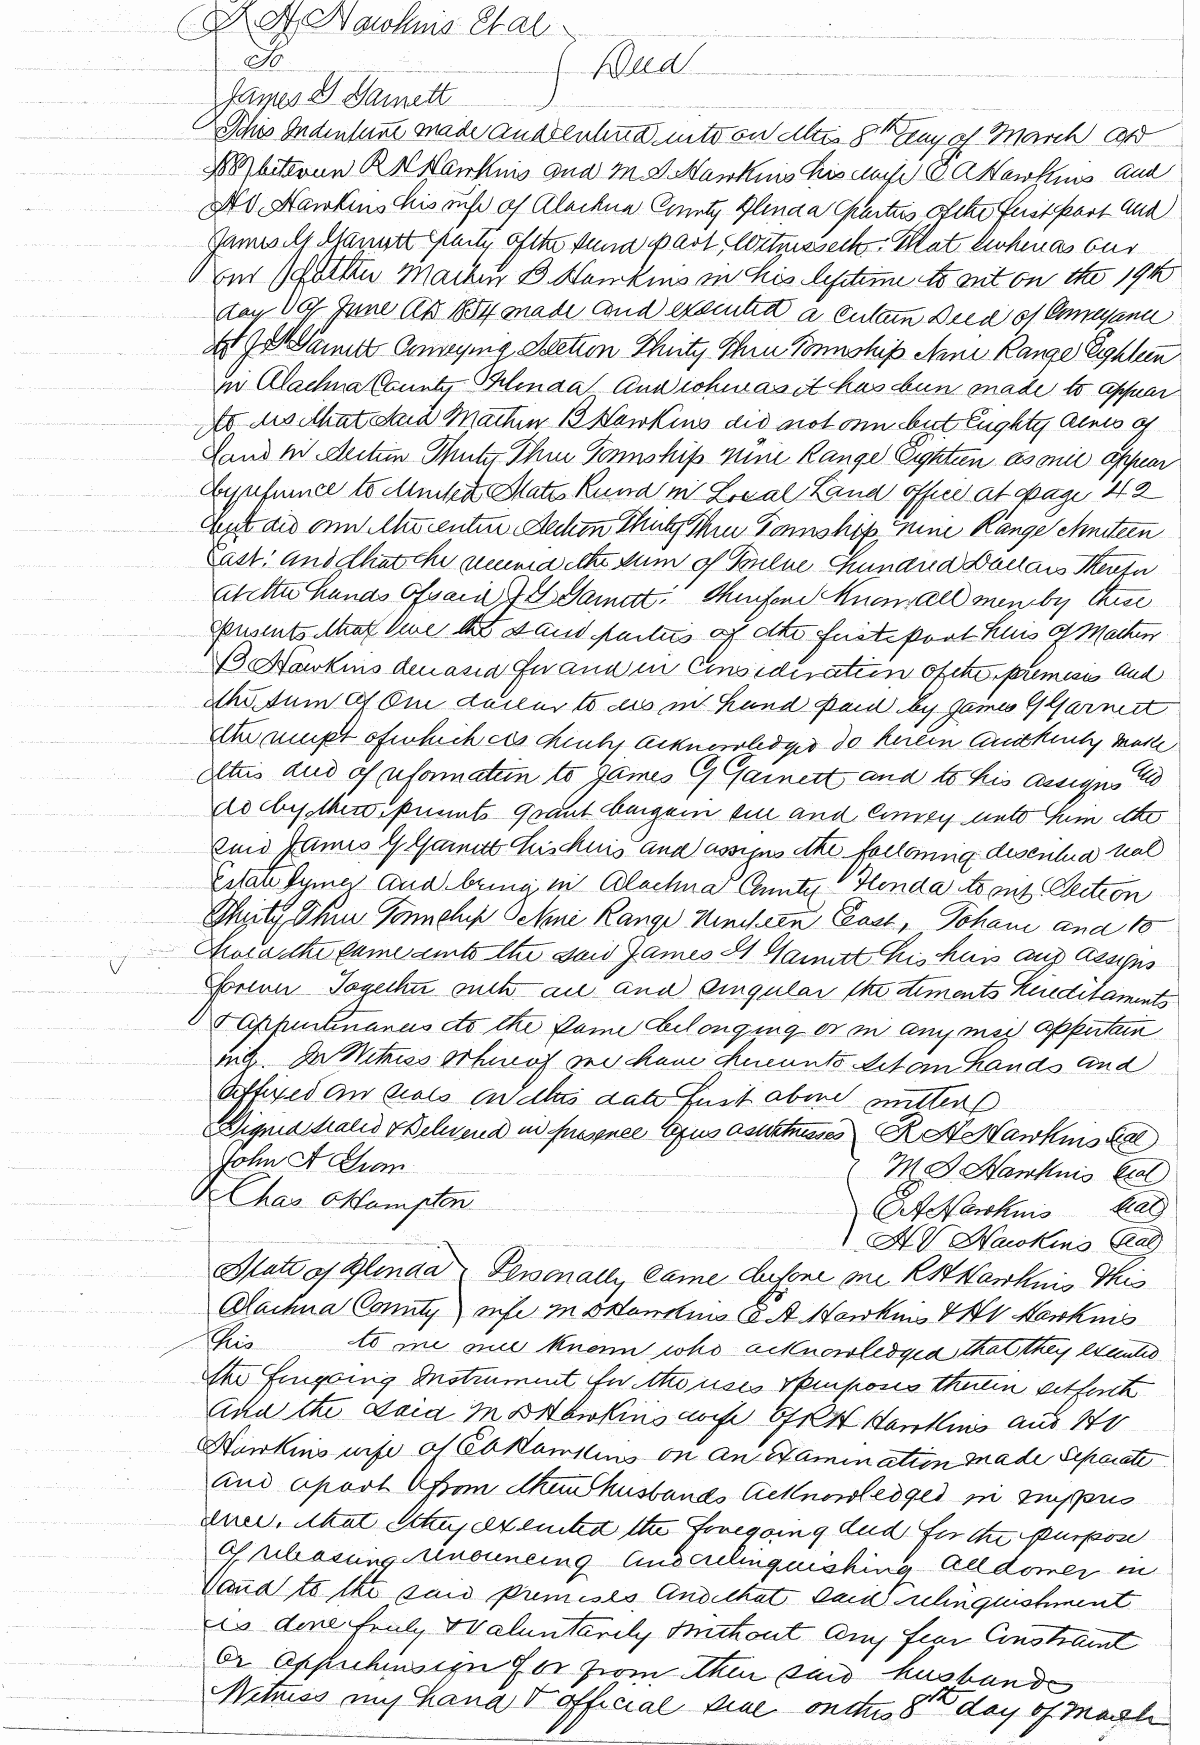 R H Hawkins Et al
To
Deed
James G Garnett
This Indenture made and entered into on this 8th day of March AD
between R H Hawkins and M D Hawkins his wife E A Hawkins and
H V Hawkins his wife of Alachua County Florida parties of the first part and
James G Garnett party of the second part, Witnesseth: That whereas our
our father Mathew B Hawkins in his lifetime to wit on the 19th
day of June AD 1854 made and executed a certain Deed of Conveyance
to J G Garnett Conveying Section Thirty Three Township Nine Range Eighteen
in Alachua County Florida And whereas it has been made to appear
to us that said Mathew B Hawkins did not own but Eighty acres of
Land in Section Thirty Three Township nine Range Eighteen as will appear
by refrence to United States Record in Local Land office at page 42
but did own the entire Section Thirty Three Township nine Range Nineteen
East: and that he received the sum of Twelve hundred Dollars therefor
at the hands of said J G Garnett: therefore Know all men by these
presents that we the said parties of the first part heirs of Mathew
B Hawkins deceased for and in Consideration of the premises and
the sum of One dollar to us in hand paid by James G Garnett
the receipt of which is hereby acknowledged do herein and hereby make
this deed of reformation to James G Garnett and to his assigns and
do by these presents grant bargain sell and convey unto him the
said James G Garnett his heirs and assigns the following described real
Estate lying and being in Alachua County Florida to wit Section
Thirty Three Township Nine Range Nineteen East, To have and to
hold the same unto the said James G Garnett his heirs and assigns
forever Together with all and singular the tenments hereditaments
& appurtinances to the same belonging or in any wise appertain
ing. In Witness whereof we have hereunto set our hands and
affixed our seals on this date first above written
Signed sealed & Delivered in presence of us as witnesses R H Hawkins seal
John A M D Hawkins seal
Chas Hampton E A Hawkins seal
H V Hawkins seal
State of Florida Personally came before me R H Hawkins This
Alachua County wife M D Hawkins E A Hawkins & H V Hawkins
his to me well known who acknowledged that they executed
the foregoing Instrument for the uses & purposes therein set forth
And the said M D Hawkins wife of R H Hawkins and H V
Hawkins wife of E A Hawkins on an examination made separate
and apart from their husbands acknowledged in my pres
ence, that they executed the foregoing deed for the purpose
of releasing renouncing and relinquishing all dower in
and to the said premises and that said relinquishment
is done freely & Voluntarily without any fear Constraint
or apprehension of or from their said husbands
Witness my hand & official seal on this 8th day of March